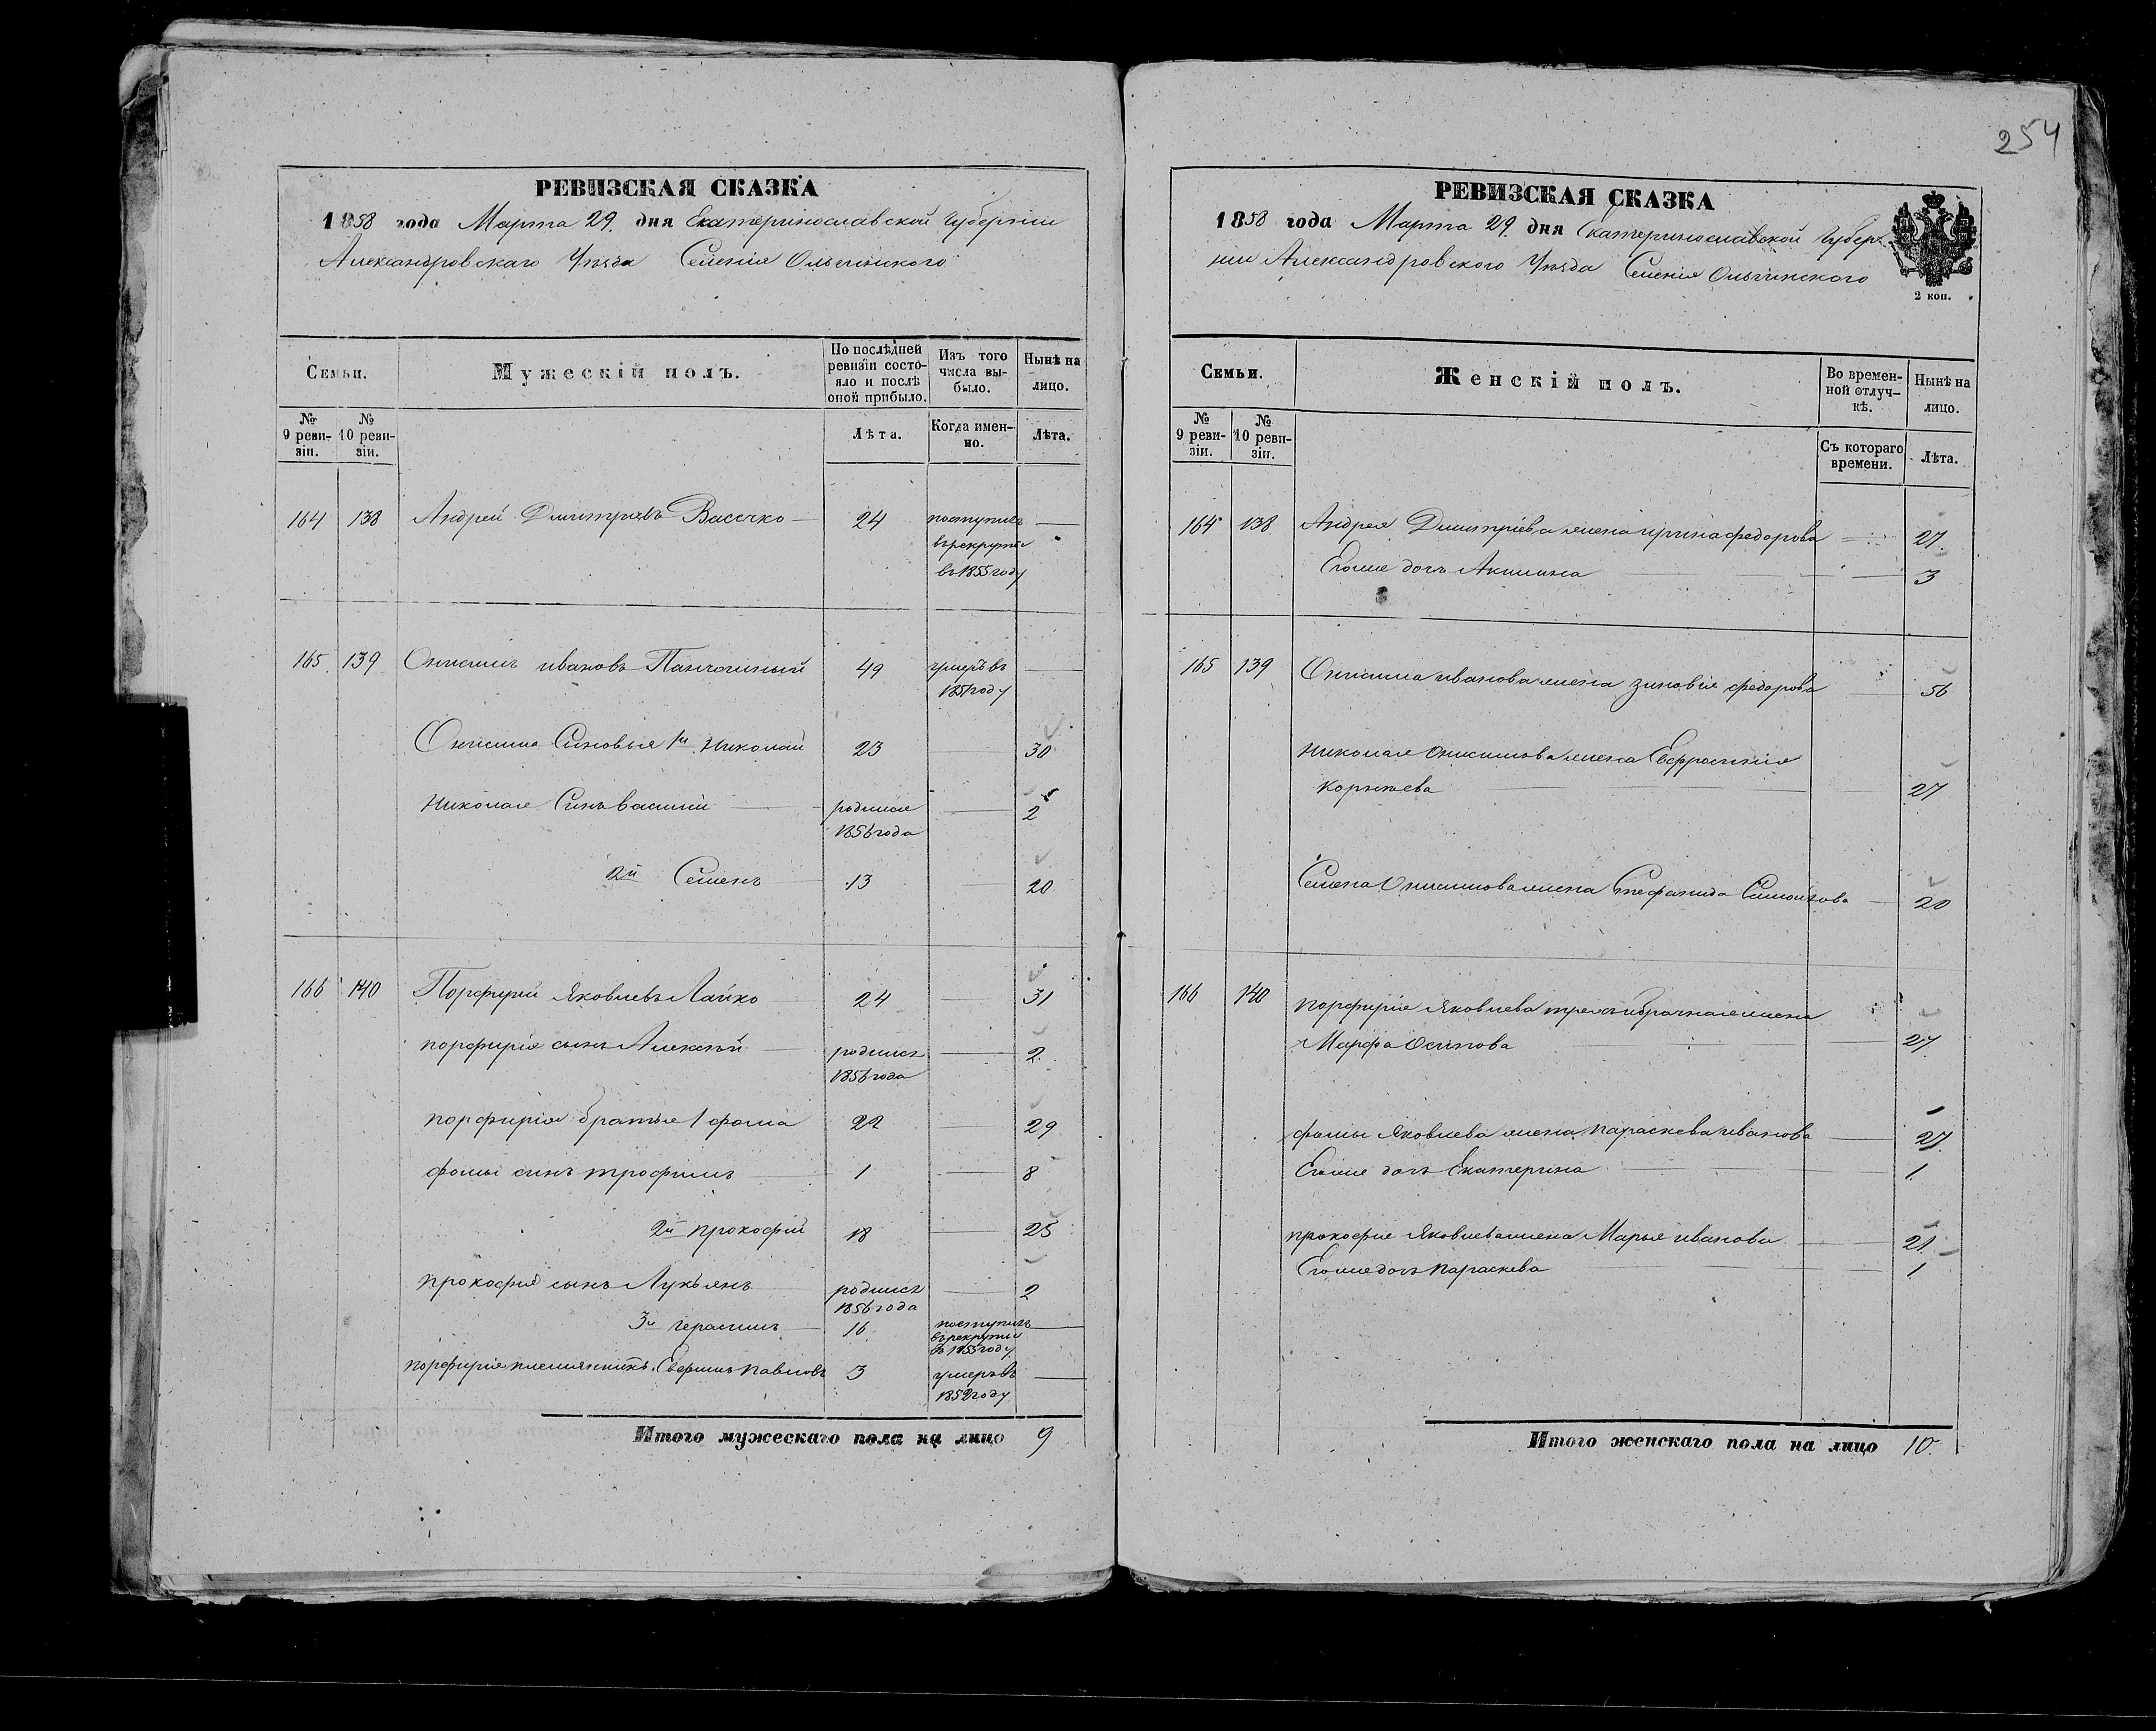 254
РЕВИЗСКАЯ СКАЗКА
1858 года Марта 29. дня Екатеринославской Губерніи
Александровскаго Уѣзда Селенія Ольгинского
Семьи.
Мужескій полъ.
По послѣдней ревизіи состояло и послѣ оной прибыло.
Изъ того числа выбыло.
Нынѣ на лицо.
№ 9 ревизіи.
№ 10 ревизіи.
Лѣта.
Когда именно.
Лѣта.
164 138 Андрей Дмитріевъ Васечко 24 поступилъ —
врекруты
въ 1855 году
165. 139 Онисимъ ивановъ 49 умеръ въ —
1851 году
Онисима Синовья 1й Николай 23 — 30
Николая Синъ василий — родился — 2
1856 года
2й Семенъ — 13 — 20
166 140 Порфирий Яковлевъ Лайко 24 — 31
порфирія сынъ Алексѣй — родился — 2
1856 года
порфирія братья 1 фома 22 — 29
фомы синъ трофимъ — 1 — 8
2й прокофий 18 — 25
прокофия сынъ Лукьянъ родился — 2
1856 года
3й герасимъ — 16 поступилъ —
врекруты
въ 1855 году
порфирія племянникъ Ефимъ павловъ 3 умеръ въ —
1852 году
Итого мужескаго пола на лицо 9
РЕВИЗСКАЯ СКАЗКА
1858 года Марта 29. дня Екатеринославской Губер
ніи Александровского Уѣзда Селенія Ольгинского
2 коп.
Семьи.
Женскій полъ.
Во временной отлучкѣ.
Нынѣ на лицо.
№ 9 ревизіи.
№ 10 ревизіи.
Съ котораго времени.
Лѣта.
164 138 Андрея Дмитріева жена ирина федорова — 27.
Егоже дочь Акилина — 3
165 139 Онисима иванова жена зиновія федорова 56
николая онисимова жена Евфросинія
Корнѣева — 27
Семена Онисимова жена Стефанида Симонова — 20
166 140 порфирія Яковлева жена
Марфа Осипова 27
фомы Яковлева жена параскева иванова — 27.
Егоже дочь Екатерина — 1
прокофия Яковлева жена Марья иванова — 21.
Егоже дочь параскева — 1
Итого женскаго пола на лицо 10.